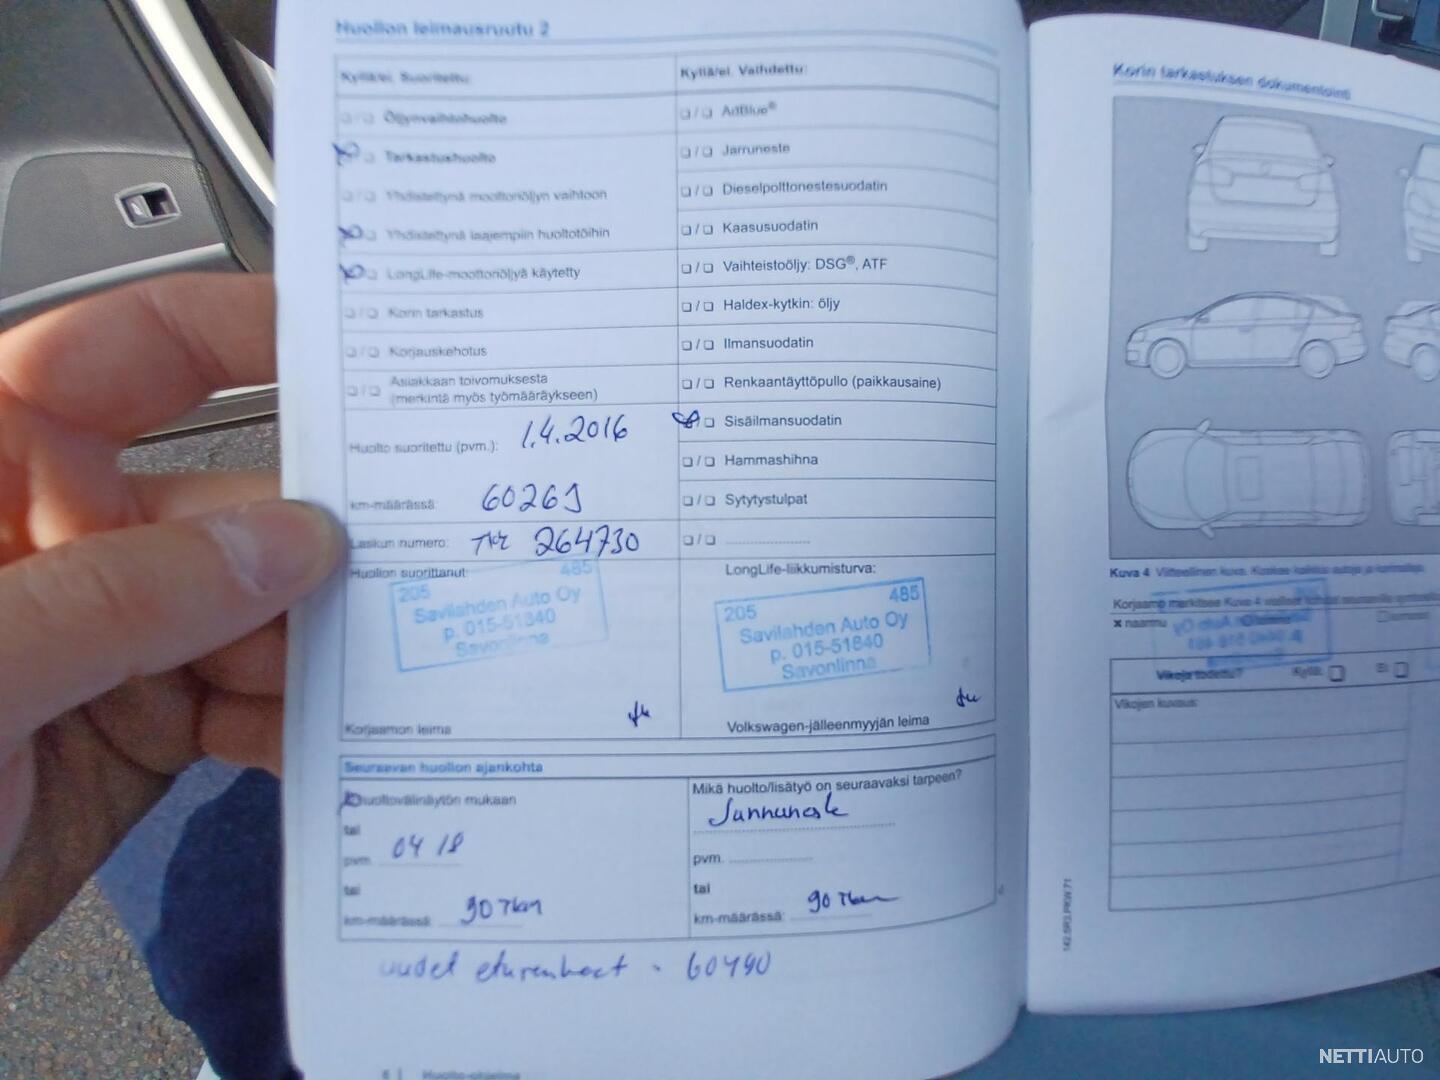 Huollon leimausruutu 2
Kyllä/ei. Suoritettu:
Öljynvaihtohuolto
Tarkastushuolto
Yhdistettynä moottoriöljyn vaihtoon
Yhdistettynä laajempiin huoltotöihin
LongLife-moottoriöljyä käytetty
Korin tarkastus
Korjauskehotus
Asiakkaan toivomuksesta
(merkintä myös työmääräykseen)
Huolto suoritettu (pvm.): 1.4.2016
km-määrässä: 60269
Laskun numero: TKR 264730
Huollon suorittanut:
205 485
Savilahden Auto Oy
p. 015-51840
Savonlinna
Korjaamon leima
Kyllä/ei. Vaihdettu:
AdBlue®
Jarruneste
Dieselpolttonestesuodatin
Kaasusuodatin
Vaihteistoöljy: DSG®, ATF
Haldex-kytkin: öljy
Ilmansuodatin
Renkaantäyttöpullo (paikkausaine)
Sisäilmansuodatin
Hammashihna
Sytytystulpat
LongLife-liikkumisturva:
205 485
Savilahden Auto Oy
p. 015-51840
Savonlinna
Volkswagen-jälleenmyyjän leima
Seuraavan huollon ajankohta
huoltovälinäytön mukaan
tai
pvm. 04 18
tai
km-määrässä: 90 Tkm
Mikä huolto/lisätyö on seuraavaksi tarpeen?
Jarruneste
pvm.
tai
km-määrässä: 90 Tkm
uudet eturenkaat - 60490
6 | Huolto-ohjelma
Korin tarkastuksen dokumentointi
Kuva 4
Korjaamo merkitsee Kuva 4
x naarmu
Vikoja todettu? Kyllä: Ei
Vikojen kuvaus:
142.5R3.PKW.71
NETTIAUTO